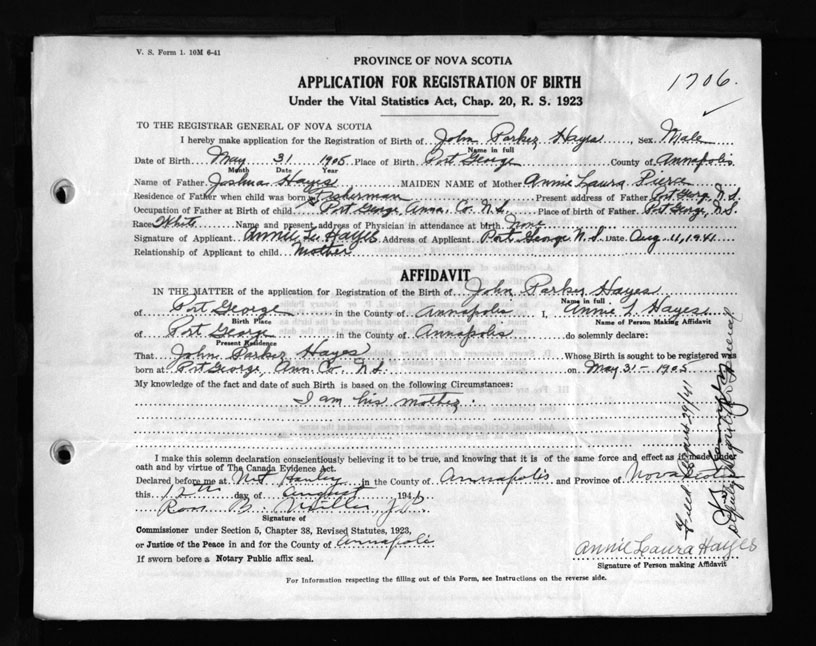 V. S. Form 1. 10M 6-41
PROVINCE OF NOVA SCOTIA
APPLICATION FOR REGISTRATION OF BIRTH
Under the Vital Statistics Act, Chap. 20, R. S. 1923
1706.
TO THE REGISTRAR GENERAL OF NOVA SCOTIA
I hereby make application for the Registration of Birth of John Parker Hayes, Sex Male
Name in full
Date of Birth May 31 1905 Place of Birth Port George County of Annapolis
Month Date Year
Name of Father Joshua Hayes MAIDEN NAME of Mother Annie Laura
Residence of Father when child was born Fisherman Present address of Father Port George, N.S.
Occupation of Father at Birth of child Port George, Anna. Co. N.S. Place of birth of Father Port George, N.S.
Race White Name and present address of Physician in attendance at birth None
Signature of Applicant Annie L. Hayes Address of Applicant Port George N.S. Date Aug 11, 1941
Relationship of Applicant to child Mother
AFFIDAVIT
IN THE MATTER of the application for Registration of the Birth of John Parker Hayes
Name in full
of Port George in the County of Annapolis I, Annie L Hayes
Birth Place Name of Person Making Affidavit
of Port George in the County of Annapolis do solemnly declare:
Present Residence
That John Parker Hayes Whose Birth is sought to be registered was
born at Port George, Ann. Co. N.S. on May 31 - 1905
My knowledge of the fact and date of such Birth is based on the following Circumstances:
I am his mother.
I make this solemn declaration conscientiously believing it to be true, and knowing that it is of the same force and effect as if made under
oath and by virtue of The Canada Evidence Act.
Declared before me at Mt Hanley in the County of Annapolis and Province of Nova Scotia
this 12th day of August 1941
Ross B. Miller J.P.
Signature of
Commissioner under Section 5, Chapter 38, Revised Statutes, 1923,
or Justice of the Peace in and for the County of Annapolis
If sworn before a Notary Public affix seal.
Annie Laura Hayes
Signature of Person making Affidavit
For Information respecting the filling out of this Form, see Instructions on the reverse side.
Filed August 29/41
Deputy Registrar General